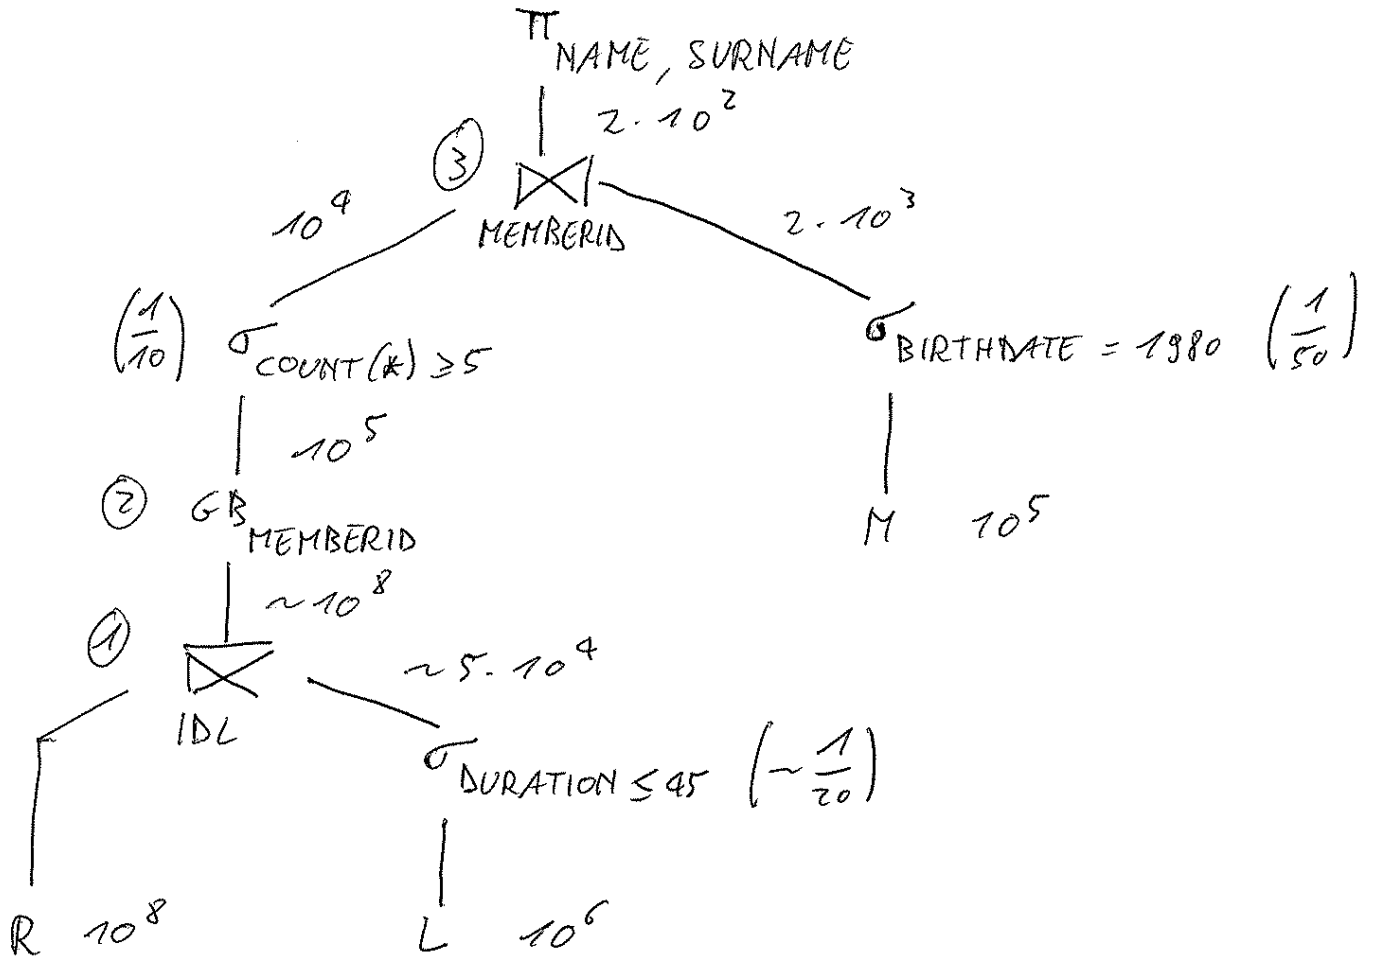 π NAME, SURNAME
2·10²
③ ⋈ MEMBERID
10⁴
2·10³
(1/10) σ COUNT(*) ≥ 5
σ BIRTHDATE = 1980 (1/50)
10⁵
② GB MEMBERID
M 10⁵
~10⁸
① ⋈ IDL
~5·10⁴
σ DURATION ≤ 45 (~1/20)
R 10⁸
L 10⁶